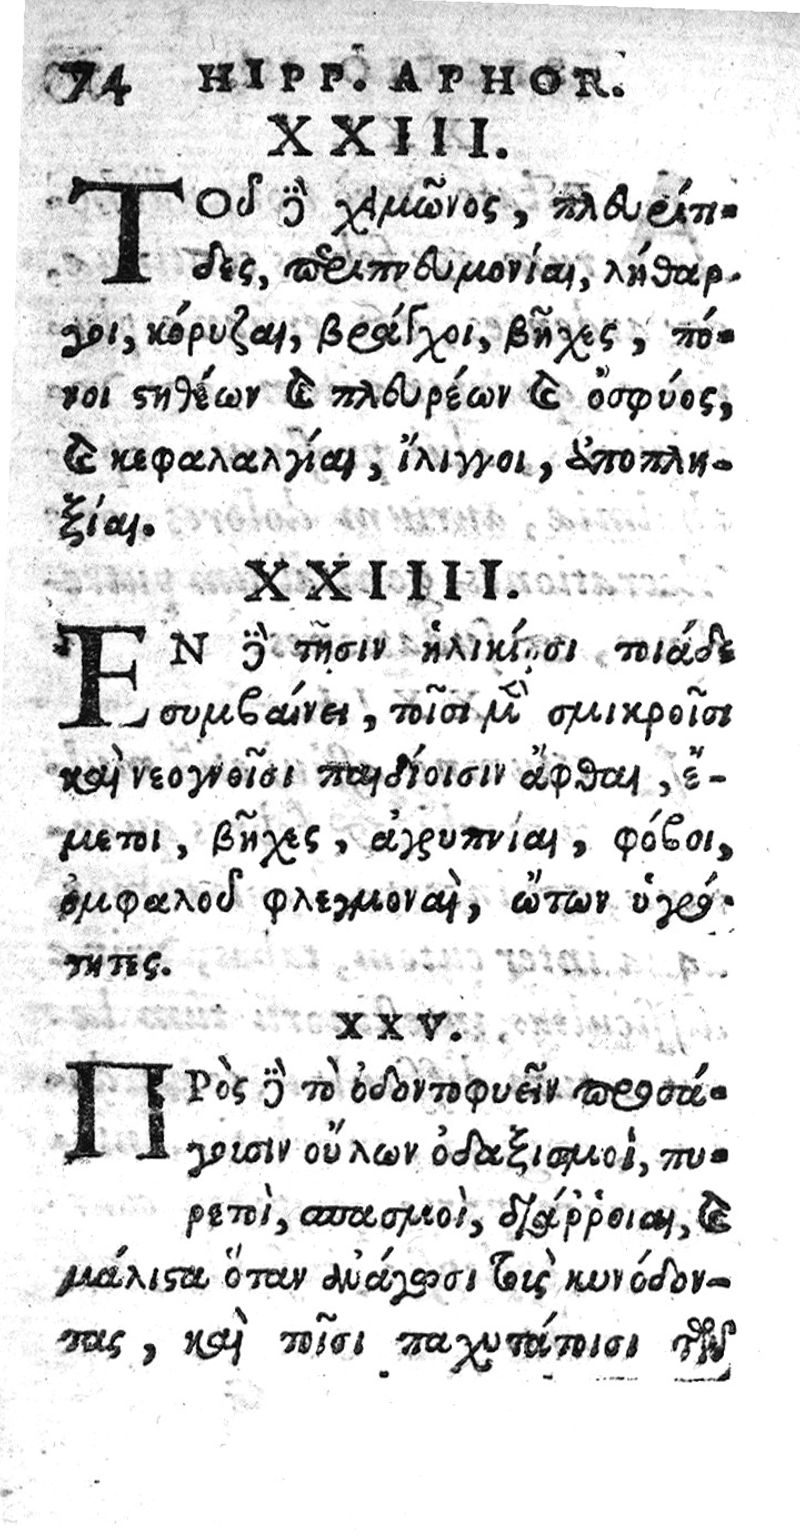 74 HIPP. APHOR.
XXIII.
Τοῦ δὲ χειμῶνος, πλευρίτι-
δες, περιπνευμονίαι, λήθαρ-
γοι, κόρυζαι, βράγχοι, βῆχες, πό-
νοι στηθέων καὶ πλευρέων καὶ ὀσφύος,
καὶ κεφαλαλγίαι, ἴλιγγοι, ἀποπλη-
ξίαι.
XXIIII.
ΕΝ δὲ τῇσιν ἡλικίῃσι τοιάδε
συμβαίνει, τοῖσι μὲν σμικροῖσι
καὶ νεογνοῖσι παιδίοισιν ἄφθαι, ἔ-
μετοι, βῆχες, ἀγρυπνίαι, φόβοι,
ὀμφαλοῦ φλεγμοναὶ, ὤτων ὑγρό-
τητες.
XXV.
ΠΡὸς δὲ τὸ ὀδοντοφυεῖν προσά-
γουσιν οὔλων ὀδαξισμοὶ, πυ-
ρετοὶ, σπασμοὶ, διάῤῥοιαι, καὶ
μάλιστα ὅταν ἀνάγωσι τοὺς κυνόδον-
τας, καὶ τοῖσι παχυτάτοισι τῶν